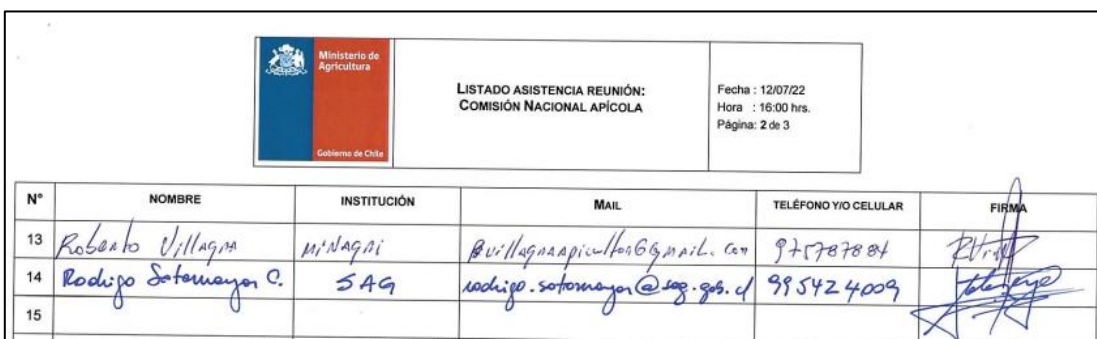 Ministerio de
Agricultura
Gobierno de Chile
LISTADO ASISTENCIA REUNIÓN:
COMISIÓN NACIONAL APÍCOLA
Fecha : 12/07/22
Hora : 16:00 hrs.
Página: 2 de 3
N° NOMBRE INSTITUCIÓN MAIL TELÉFONO Y/O CELULAR FIRMA
13 Roberto Villagra MINAGRI 975787884
14 Rodrigo Sotomayor C. SAG rodrigo.sotomayor@sag.gob.cl 995424009
15